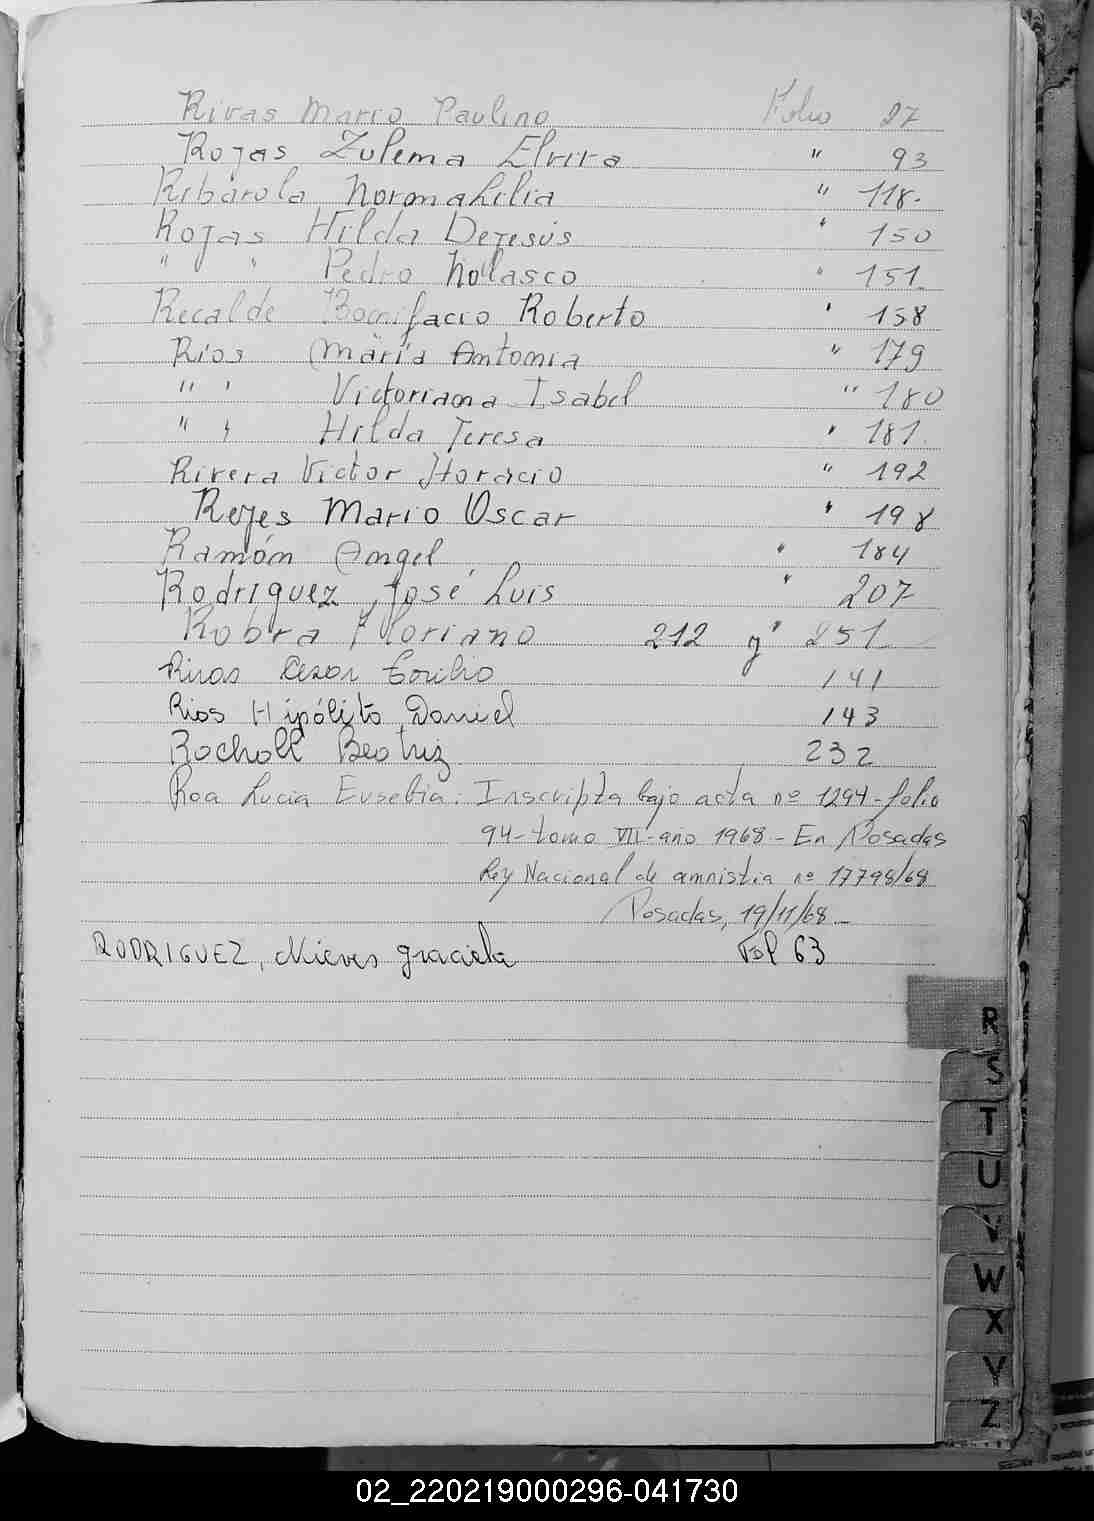 Rivas Marco Paulino Folio 27
Rojas Zulema Elvira " 93
Ribarola Norma Lilia " 118.
Rojas Hilda Dejesús " 150
" " Pedro Nolasco " 151.
Recalde Bonifacio Roberto " 158
Rios María Antonia " 179
" " Victoriana Isabel " 180
" " Hilda Teresa " 181.
Rivera Victor Horacio " 192
Reyes Mario Oscar " 198
Ramón Angel " 184
Rodriguez José Luis " 207
Robra Floriano 212 y " 251
Rivas Cesar Emilio 141
Rios Hipólito Daniel 143
Rocholl Beatriz 232
Roa Lucia Eusebia: Inscripta bajo acta nº 1294-folio
94-tomo VII-año 1968-En Posadas
Ley Nacional de amnistia nº 17798/68
Posadas, 19/11/68-
RODRIGUEZ, Nieves graciela Fol 63
R
S
T
U
V
W
X
Y
Z
02_220219000296-041730